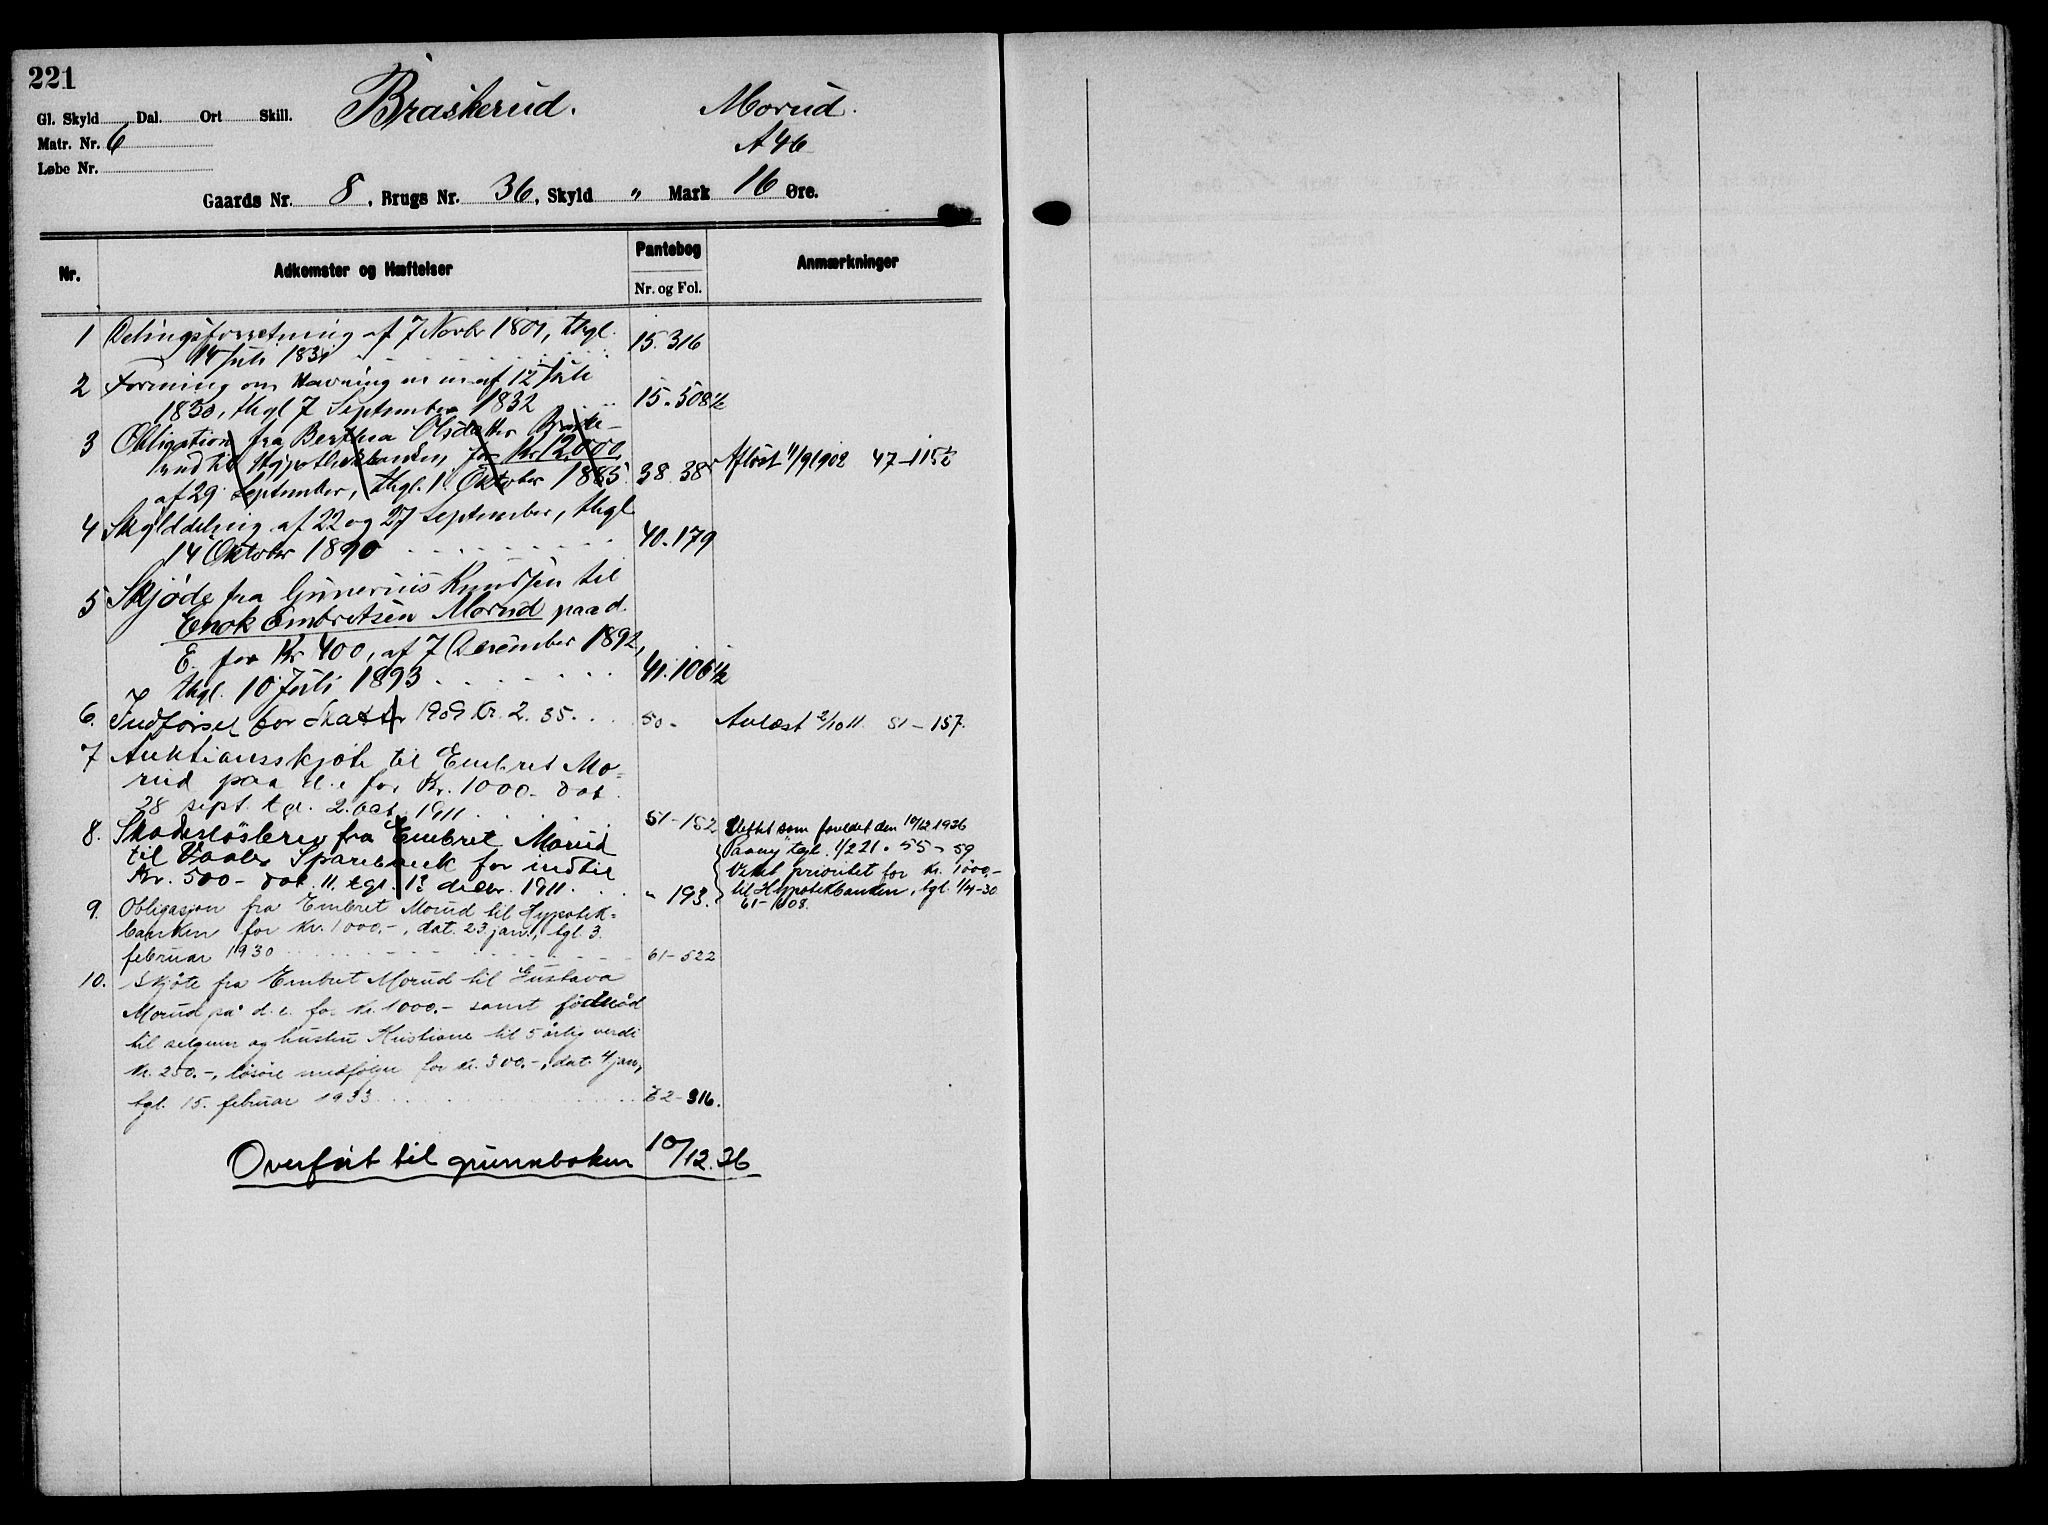 221
Braskerud. Morud.
Gl. Skyld Dal. Ort Skill.
Matr. Nr. 6 A 46
Løbe Nr.
Gaards Nr. 8, Brugs Nr. 36, Skyld " Mark 16 Øre.
Nr. Adkomster og Hæftelser Pantebog Nr. og Fol. Anmærkninger
1 Delingsforretning af 7 Novbr 1801, thgl.
14 Juli 1831 15. 316
2 Forening om Havning m m af 12 Juli
1830, thgl 7 September 1832 15. 508½
3 Obligation fra Berthea Olsdatter Braske-
rud til Hypothekbanken, for Kr 12000,
af 29 September, thgl. 1. Oktober 1885. 38. 385 Afløst 11/9 1902 47-115½
4 Skylddeling af 22 og 27 September, thgl
14 Oktober 1890 40. 179
5 Skjøde fra Gunerius Knudsen til
Enok Embretsen Morud paa d.
E. for Kr 400, af 7 December 1892,
thgl. 10 Juli 1893 41. 106½
6. Indførsel for Skatt 1909 Kr. 2. 35. 50- Avlæst 2/10 11. 51-157.
7 Auktionsskjøte til Embret Mo=
rud paa d. e for Kr. 1000- dat.
28 sept. tgl. 2. oct. 1911 51-152
8. Skadesløsbrev fra Embret Morud
til Vaaler Sparebank for indtil
Kr. 500- dat. 11. tgl. 12 decbr. 1911. " 193.
Slettet som foreldet den 10/12 1936
Paany tgl. 1/2 21. 55-59
Veket prioritet for Kr. 1000,-
til Hypotekbanken, tgl. 1/4-30
61-608.
9. Obligasjon fra Embret Morud til Hypotek=
banken for kr. 1000.-, dat. 23. jan., tgl. 3.
februar 1930 61-522
10. Skjøte fra Embret Morud til Gustava
Morud på d. e. for kr. 1000.- samt føderåd
til selgeren og hustru Kristiane til 5 årlig verdi
kr. 250.-, løsøre medfølger for kr. 300.-, dat. 4 jan,
tgl. 15. februar 1933 62-316.
Overført til grunnboken 10/12.36